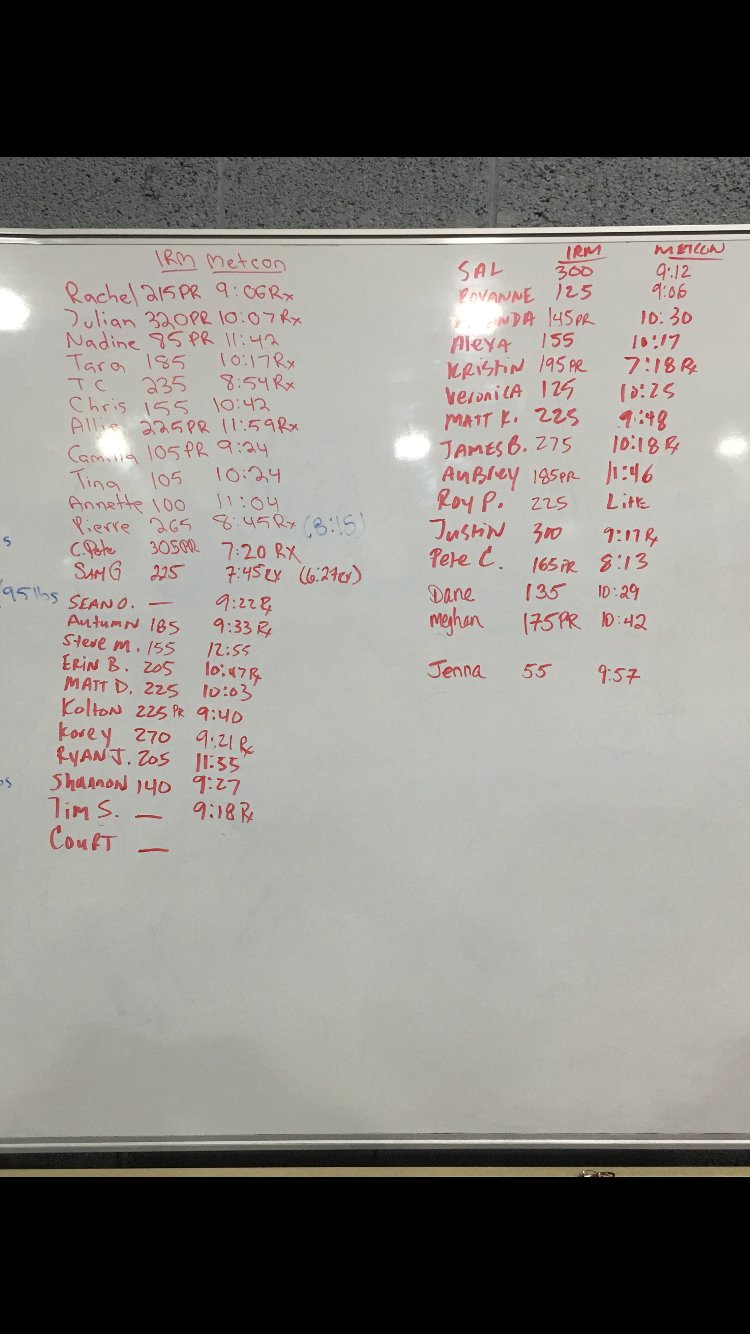 1RM Metcon
Rachel 215PR 9:06Rx
Julian 320PR 10:07Rx
Nadine 85PR 11:42
Tara 185 10:17Rx
TC 235 8:54Rx
Chris 155 10:42
Allie 225PR 11:59Rx
Camilla 105PR 9:24
Tina 105 10:24
Annette 100 11:04
Pierre 265 8:45Rx (8:15)
s
C.Pete 305PR 7:20 RX
SAM G 225 7:45RX (6:27RX)
95lbs
SEAN O. — 9:22Rx
Autumn 185 9:33Rx
Steve M. 155 12:55
ERIN B. 205 10:47Rx
MATT D. 225 10:03
Kolton 225 PR 9:40
Korey 270 9:21Rx
RYAN J. 205 11:55
Shannon 140 9:27
Tim S. — 9:18Rx
COURT —
1RM METCON
SAL 300 9:12
ROXANNE 125 9:06
145PR 10:30
Alexa 155 10:17
KRISTIN 195PR 7:18Rx
Veronica 125 10:25
MATT K. 225 9:48
JAMES B. 275 10:18Rx
AuBRey 185PR 11:46
Roy P. 225
Justin 300 9:17Rx
Pete C. 165PR 8:13
Dane 135 10:29
meghan 175PR 10:42
Jenna 55 9:57